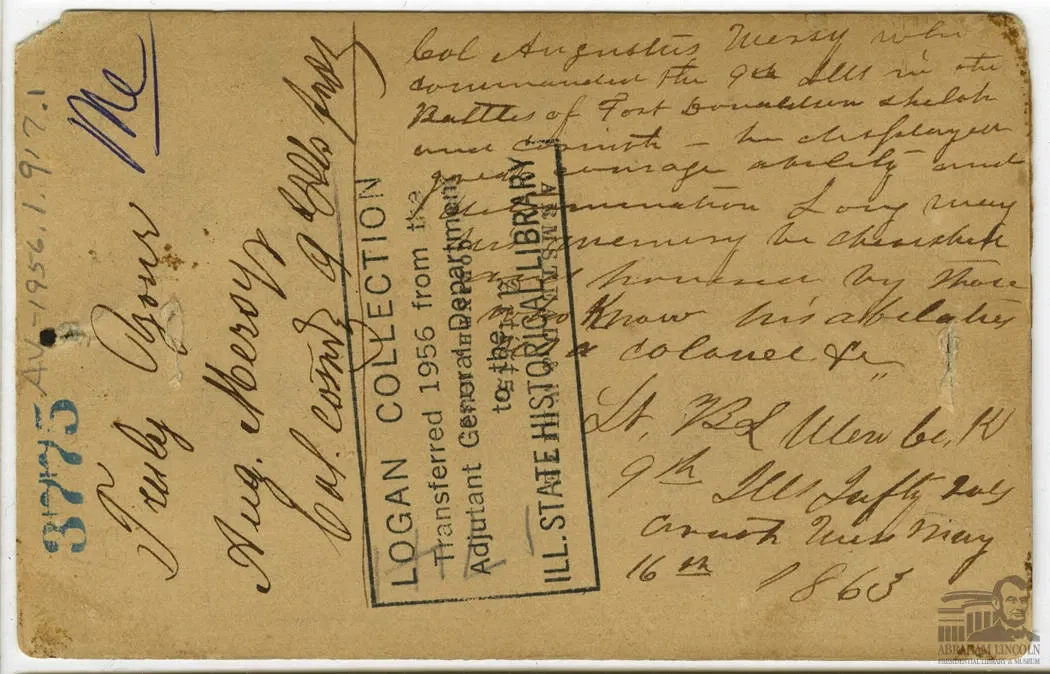 Col Augustus Mersy who
commanded the 9th Ills in the
Battles of Fort Donaldson Shiloh
and Corinth - he displayed
great courage ability and
determination Long may
his memory be cherished
and honored by those
who Know his abilities
as colonel &c
Lt, B L Co, K
9th Ills Infty Vols
Miss May
16th 1863
Truly Yours
Aug. Mersy
Col. Comdg 9 Ills Infy
Me
AV-1956.1.917.1
3775
LOGAN COLLECTION
Transferred 1956 from the
Adjutant General Department
to the
ILL. STATE HISTORICAL LIBRARY
ABRAHAM LINCOLN
PRESIDENTIAL LIBRARY & MUSEUM